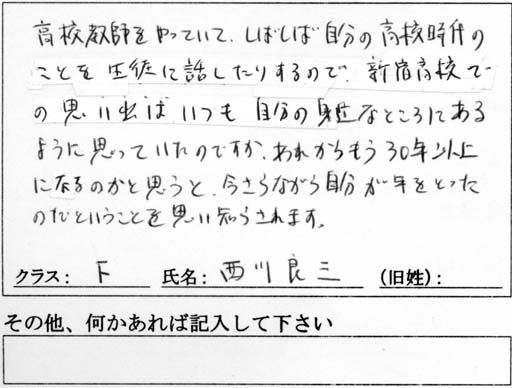 高校教師をやっていて、しばしば自分の高校時代の
ことを生徒に話したりするので、新宿高校で
の思い出はいつも自分の身近なところにある
ように思っていたのですが、あれからもう30年以上
になるのかと思うと、今さらながら自分が年をとった
のだということを思い知らされます。
クラス： F 氏名： 西川良三 (旧姓)：
その他、何かあれば記入して下さい